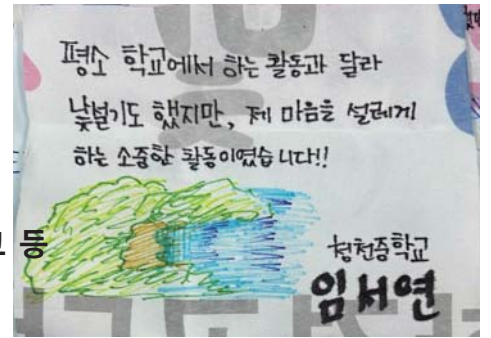 평소 학교에서 하는 활동과 달라
낯설기도 했지만, 제 마음을 설레게
하는 소중한 활동이였습니다!!
청천중학교
임서연
등